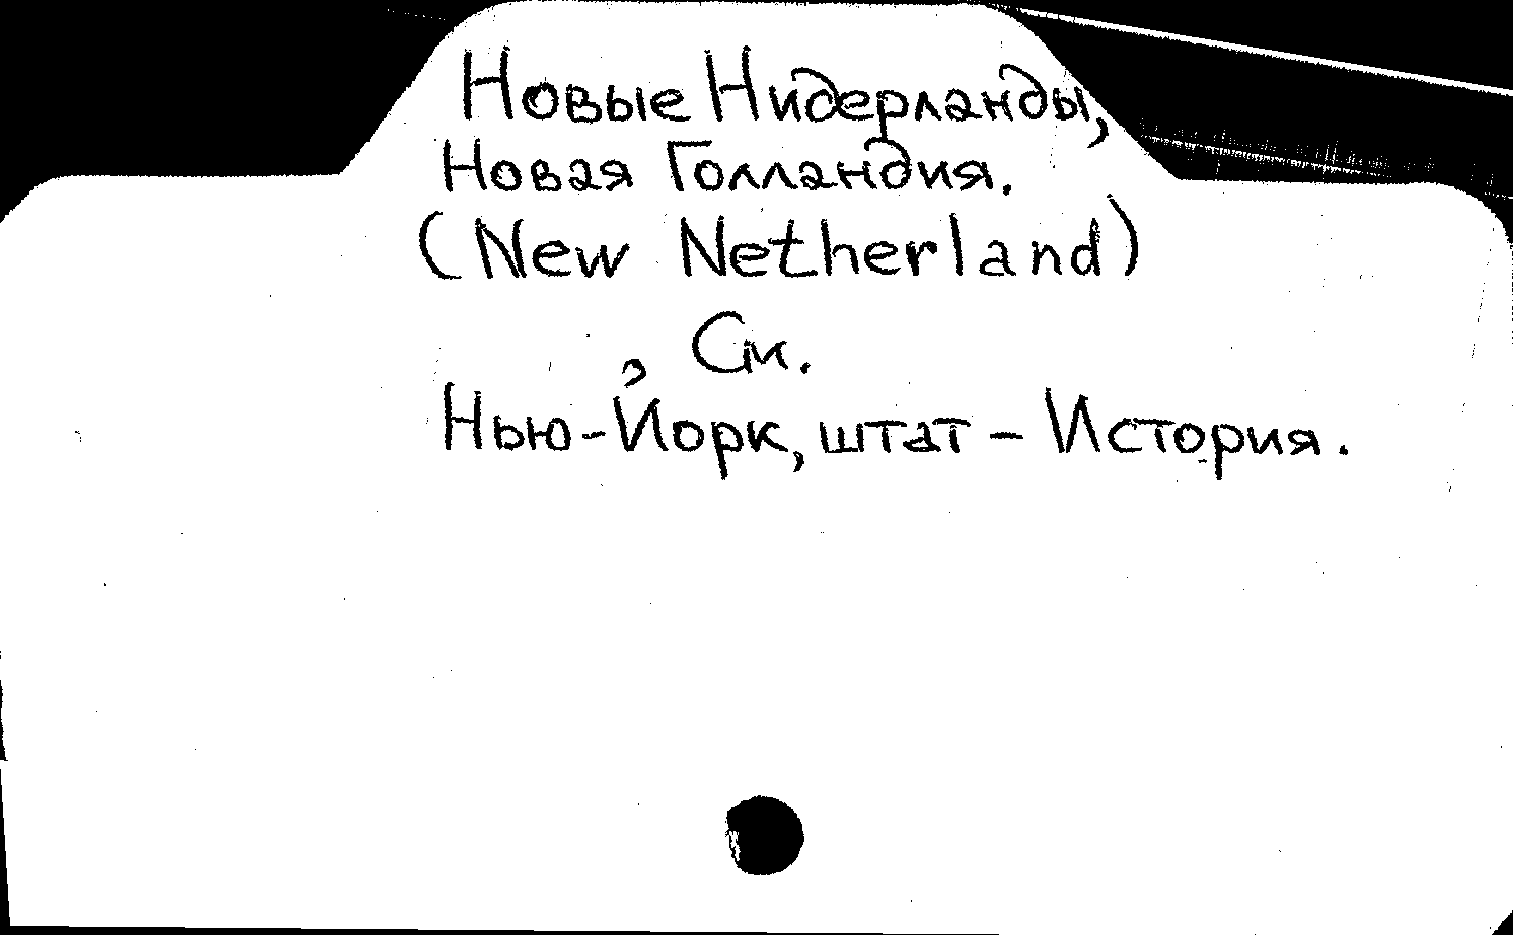 Новые Нидерланды,
Новая Голландия.
(New Netherland)
См.
Нью-Йорк, штат – История.